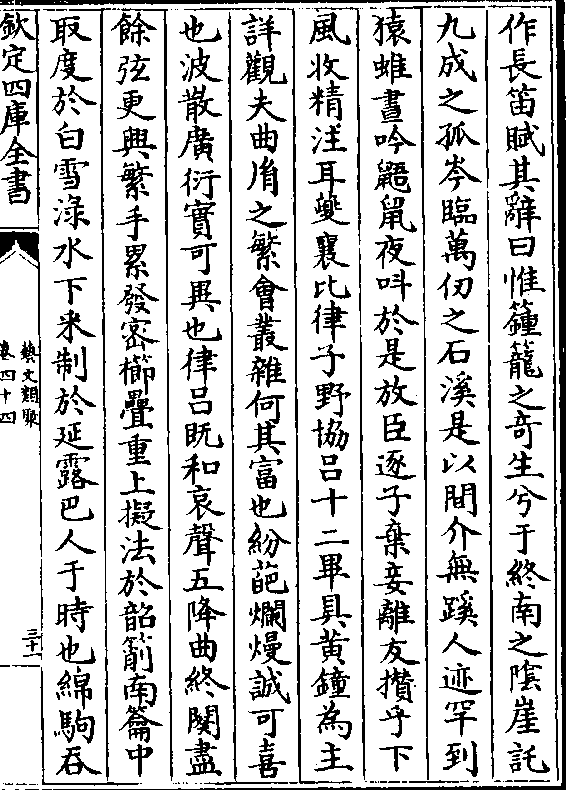 作長笛賦其辭曰惟籦籠之奇生兮于終南之陰崖託
九成之孤岑臨萬仞之石溪是以間介無蹊人迹罕到
猿蜼晝吟鼯鼠夜叫於是放臣逐子棄妾離友攅乎下
風收精注耳夔襄比律子野協呂十二畢具黄鐘為主
詳觀夫曲胤之繁會叢雜何其富也紛葩爛熳誠可喜
也波散廣衍實可異也律呂既和哀聲五降曲終闋盡
餘弦更興繁手累發宻櫛疊重上擬法於韶箾南籥中
取度於白雪淥水下采制於延露巴人于時也綿駒吞
欽定四庫全書
藝文類聚
卷四十四
三十一